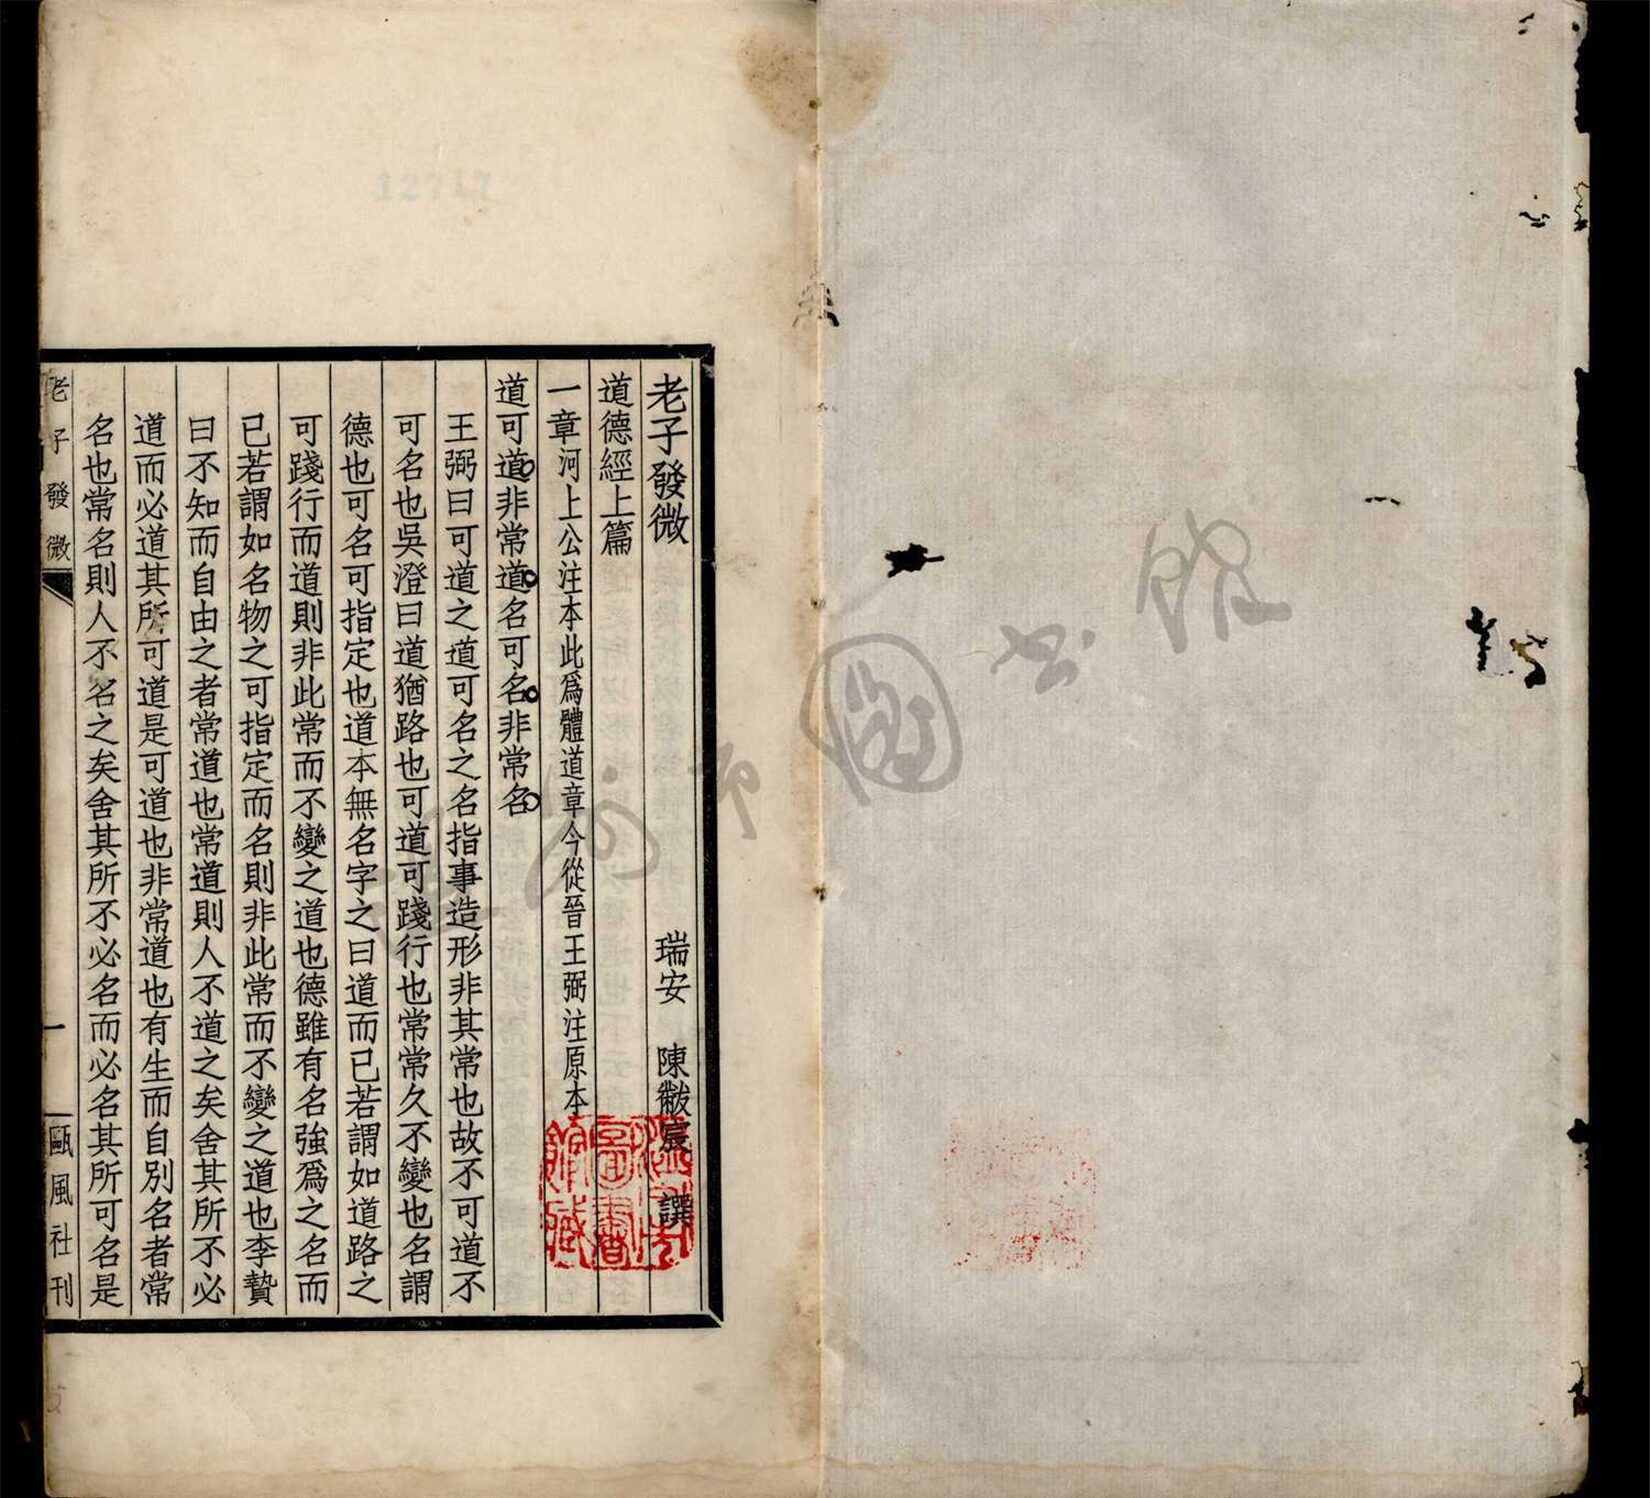 老子發微
瑞安 陳黻宸 譔
道德經上篇
一章河上公注本此爲體道章今從晉王弼注原本
道可道非常道名可名非常名
王弼曰可道之道可名之名指事造形非其常也故不可道不
可名也吳澄曰道猶路也可道可踐行也常常久不變也名謂
德也可名可指定也道本無名字之曰道而已若謂如道路之
可踐行而道則非此常而不變之道也德雖有名強爲之名而
已若謂如名物之可指定而名則非此常而不變之道也李贄
曰不知而自由之者常道也常道則人不道之矣舍其所不必
道而必道其所可道是可道也非常道也有生而自別名者常
名也常名則人不名之矣舍其所不必名而必名其所可名是
老子發微
一
甌風社刊
12717
溫州市圖書館藏
溫州市圖書館